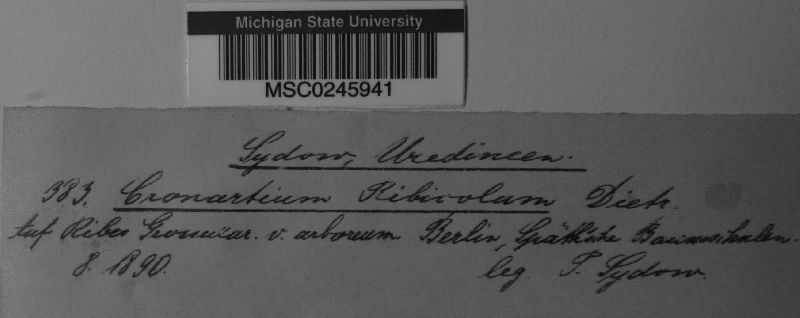 Michigan State University
MSC0245941
Sydow, Uredineen.
383. Cronartium Ribicolum Dietr.
Auf Ribes Grossular. v. arboreum. Berlin, Späth'sche Baumschulen.
8. 1890.
leg. P. Sydow.